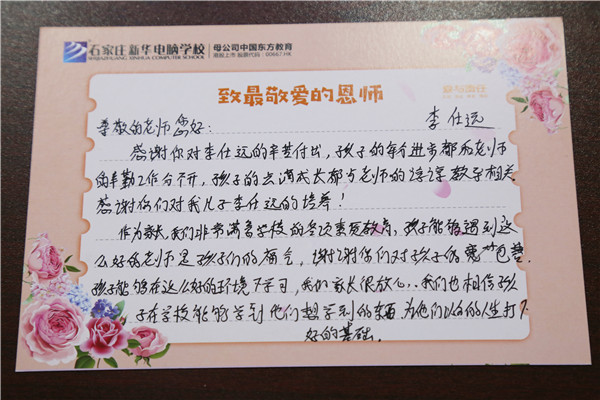 石家庄新华电脑学校
SHIJIAZHUANG XINHUA COMPUTER SCHOOL
母公司中国东方教育
港股上市 股票代码:00667.HK
致最敬爱的恩师
李任远
尊敬的老师您好:
感谢你对李任远的辛苦付出,孩子的每个进步都和老师
的辛勤工作分不开,孩子的点滴成长都与老师的谆谆教学相关
感谢你们对我儿子李任远的培养!
作为家长我们非常满意学校的各次素质教育,孩子能够遇到这
么好的老师是孩子们的福气,谢谢你们对孩子的宽
孩子能够在这么好的环境下学习,我们家长很放心,我们也相信孩
子在学校能够学到他们想学到的东西,为他们以后的人生打下
好的基础.